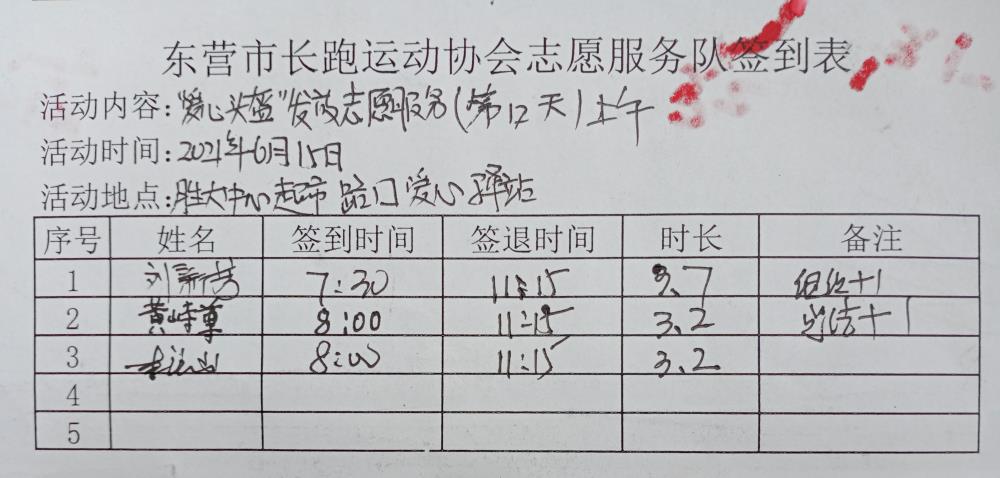 东营市长跑运动协会志愿服务队签到表
活动内容:"爱心头盔"发放志愿服务(第12天)上午
活动时间:2021年6月15日
活动地点:胜大中心超市路口爱心驿站
序号 姓名 签到时间 签退时间 时长 备注
1 刘新芳 7:30 11:15 3.7 +1
2 黄峙革 8:00 11:15 3.2 +1
3 8:00 11:15 3.2
4
5